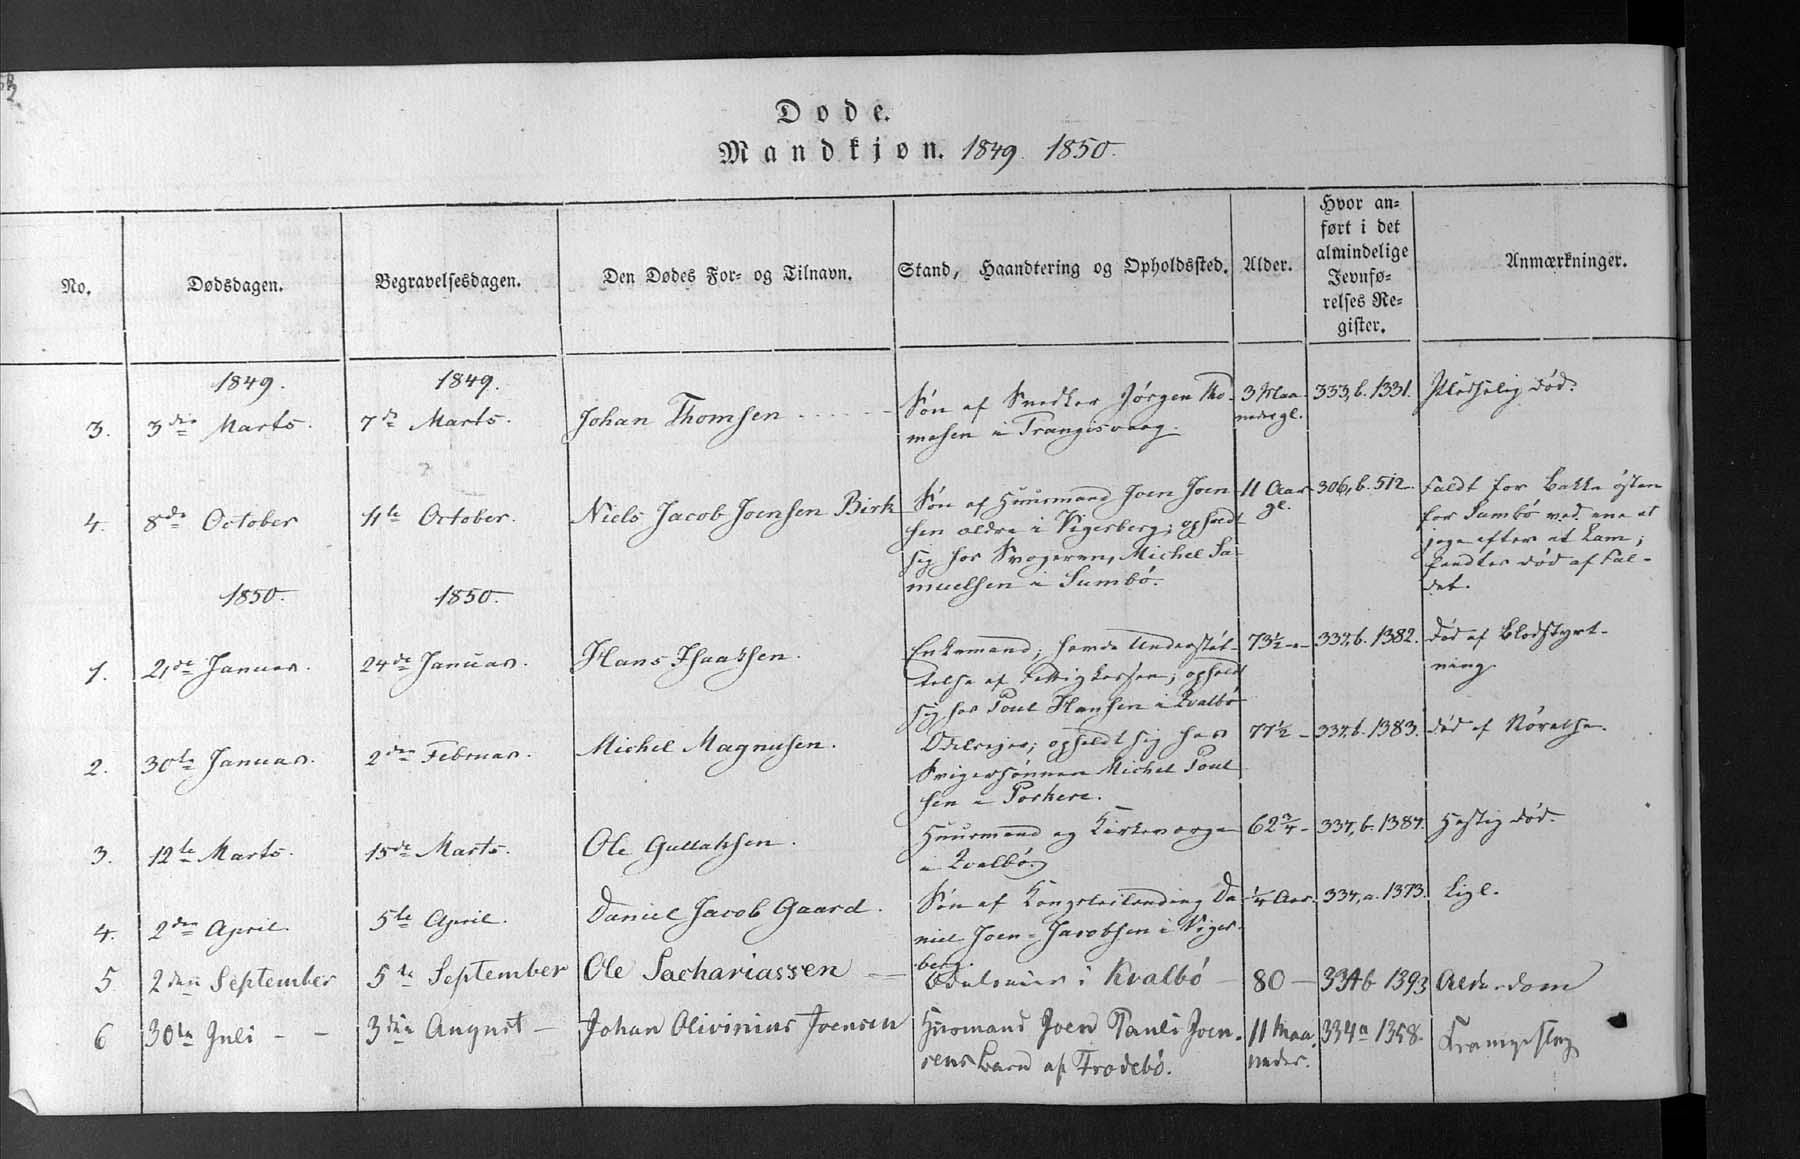 Døde.
Mandkjøn. 1849 1850.
No.
Dødsdagen.
Begravelsesdagen.
Den Dødes For- og Tilnavn.
Stand, Haandtering og Opholdssted.
Alder.
Hvor an-
ført i det
almindelige
Jevnfø-
relses Re-
gister.
Anmærkninger.
1849. 1849.
3. 3die Marts. 7de Marts. Johan Thomsen Søn af Snedker Jörgen Tho-
mesen i Trangisvaag.
3 Maa-
neder gl.
333, b. 1331. Pludselig død.
4. 8de October 11te October. Niels Jacob Joensen Birk Søn af Huusmand Joen Joen
sen ældre i Vigerberg; opholdt
sig hos Svogeren, Michel Sa-
muelsen i Sumbö.
11 Aar
gl.
306, b. 512. Faldt for Bakke östen
for Sumbö ved ene at
jage efter et Lam;
fandtes død af Fal-
det.
1850. 1850.
1. 21de Januar. 24de Januar. Hans Isaaksen. Enkemand; havde Understöt-
telse af Fattigkassen; opholdt
sig hos Poul Hansen i Qvalbö
73½ - 334, b. 1382. Død af Blodstyrt-
ning.
2. 30te Januar. 2den Februar. Michel Magnusen. Odelsejer; opholdt sig hos
Svigersönnen Michel Poul
sen i Porkere.
77½ - 334, b. 1383. Død af
3. 12te Marts. 15de Marts. Ole Guttaksen. Huusmand og Kirkeværge
i Qvalbö.
62¾ - 334, b. 1384. Hastig død.
4. 2den April. 5te April. Daniel Jacob Gaard. Søn af Da
niel Joen-Jacobsen i Viger-
berg.
¼ Aar. 334, a. 1373. Lige.
5 2den September 5te September Ole Sachariassen Odelseier i Kvalbö 80 - 334b 1393 Alderdom
6 30te Juli - - 3die August - Johan Olivinius Joensen Huusmand Joen Pauli Joen-
sens Barn af Frodebö.
11 Maa
neder.
334a 1358. Krampeslag